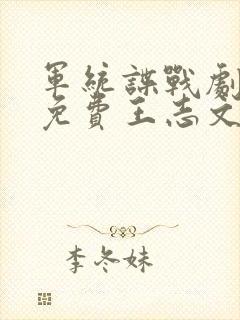 軍統諜戰劇
免費王志文
李冬妹